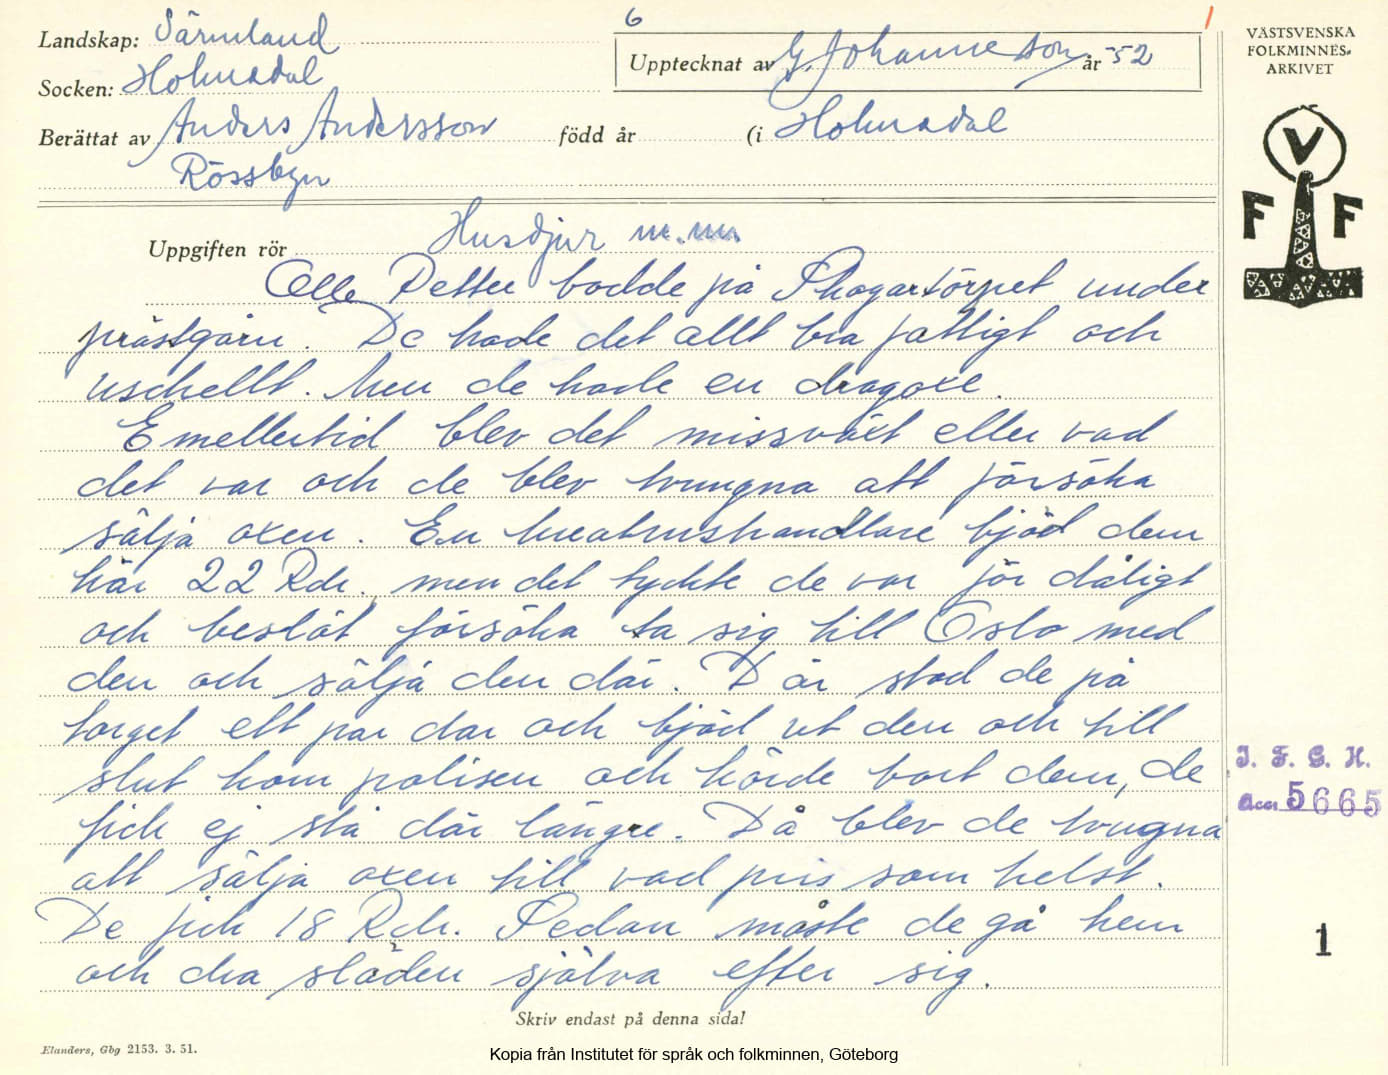 6
Landskap: Värmland
Upptecknat av G. Johannesson år -52
Socken: Holmedal
Berättat av Anders Andersson född år (i Holmedal
Rössbyn
VÄSTSVENSKA
FOLKMINNES-
ARKIVET
V
F F
Uppgiften rör Husdjur m.m.
Olle Petter bodde på Skogartörpet under
prästgårn. De hade det allt bra fattigt och
uschellt. Men de hade en dragoxe.
Emellertid blev det missväxt eller vad
det var och de blev tvungna att försöka
sälja oxen. En kreaturshandlare bjöd dem
här 22 Rdr. men det tyckte de var för dåligt
och beslöt försöka ta sig till Oslo med
den och sälja den där. Där stod de på
torget ett par dar och bjöd ut den och till
slut kom polisen och körde bort dem, de
fick ej stå där längre. Då blev de tvugna
att sälja oxen till vad pris som helst.
De fick 18 Rdr. Sedan måste de gå hem
och dra släden själva efter sig.
I. F. G. H.
acc. 5665
1
Skriv endast på denna sida!
Elanders, Gbg 2153. 3. 51.
Kopia från Institutet för språk och folkminnen, Göteborg